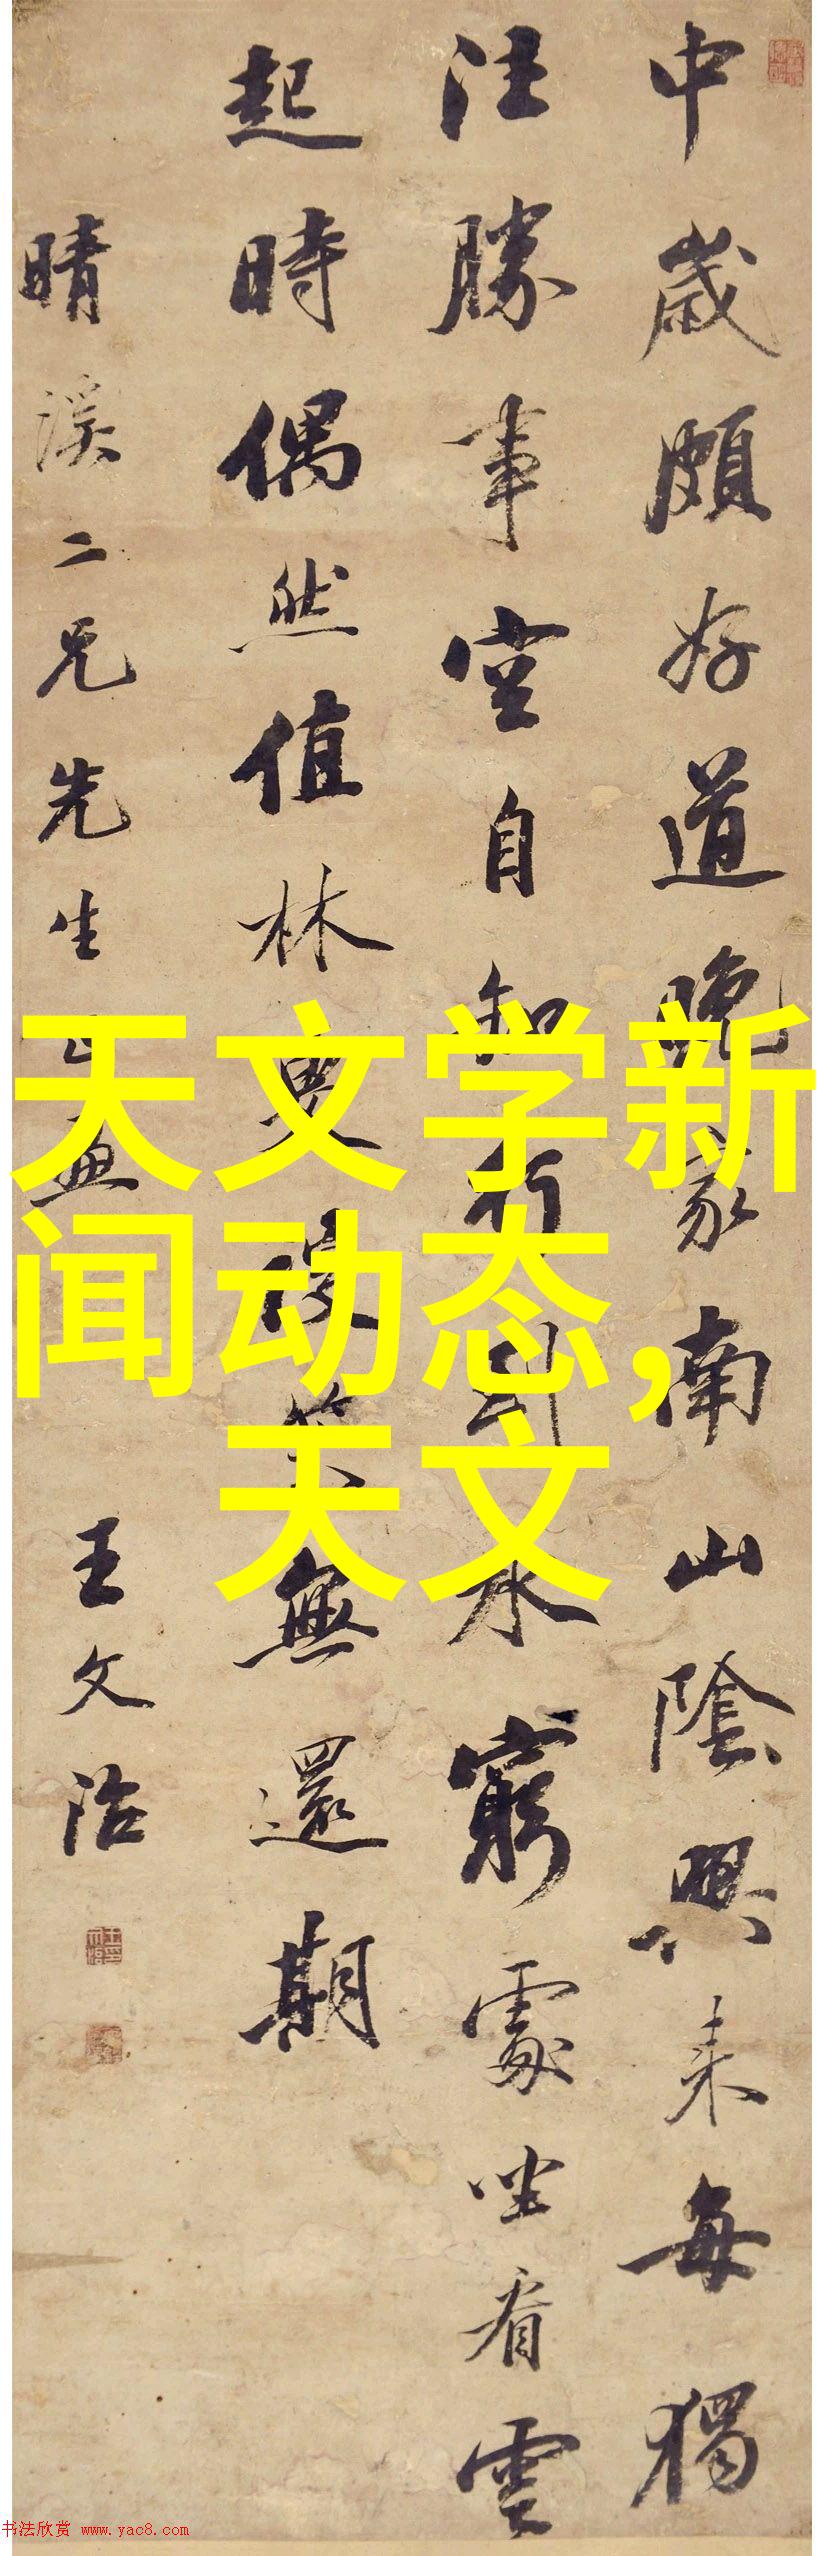 中歲頗好道晚家南山陲興来每獨
往勝事空自知行到水窮處坐看雲
起時偶然值林叟笑無還期
晴溪二兄先生
王文治
天文学新
闻动态,
天文
书法欣赏 www.yac8.com